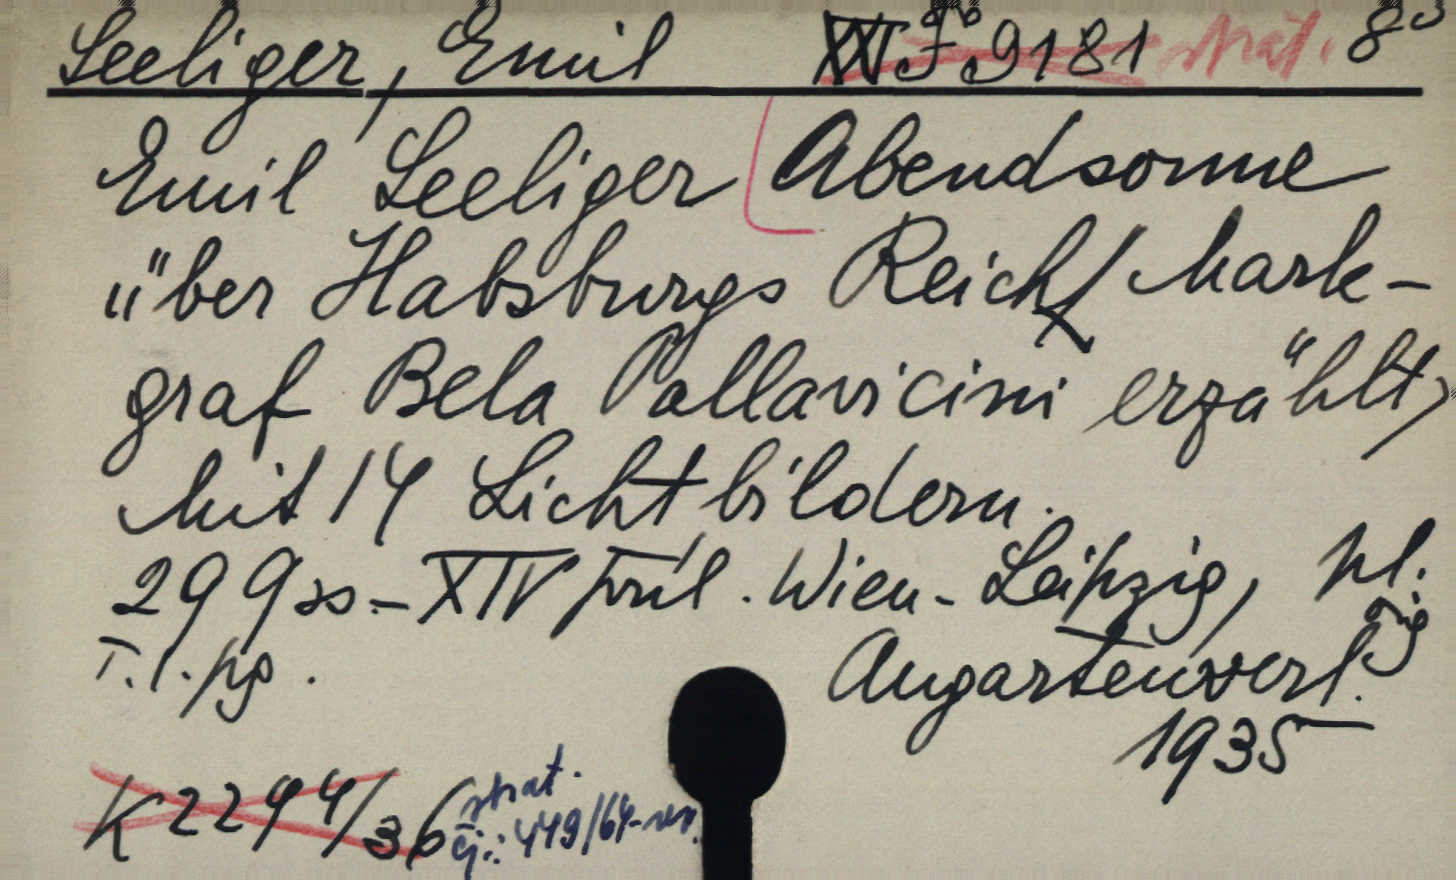 Seeliger, Emil XXI F 9181 strat. 8°
Emil Seeliger Abendsonne
über Habsburgs Reich / Mark-
graf Bela Pallavicini erzählt,
Mit 14 Lichtbildern.
299 s. - XIV příl. Wien - Leipzig,
T. l. pg. Augartenverl.
1935
K 2294/36 strat.
čj.: 449/64-rev.